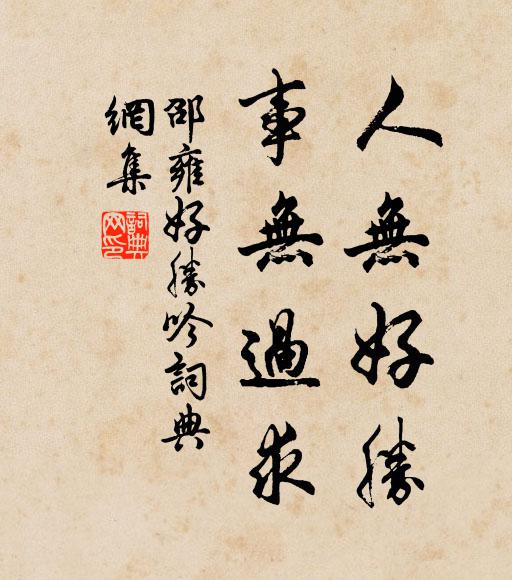 人無好勝
事無過求
邵雍好勝吟詞典
網集
詞典
网印